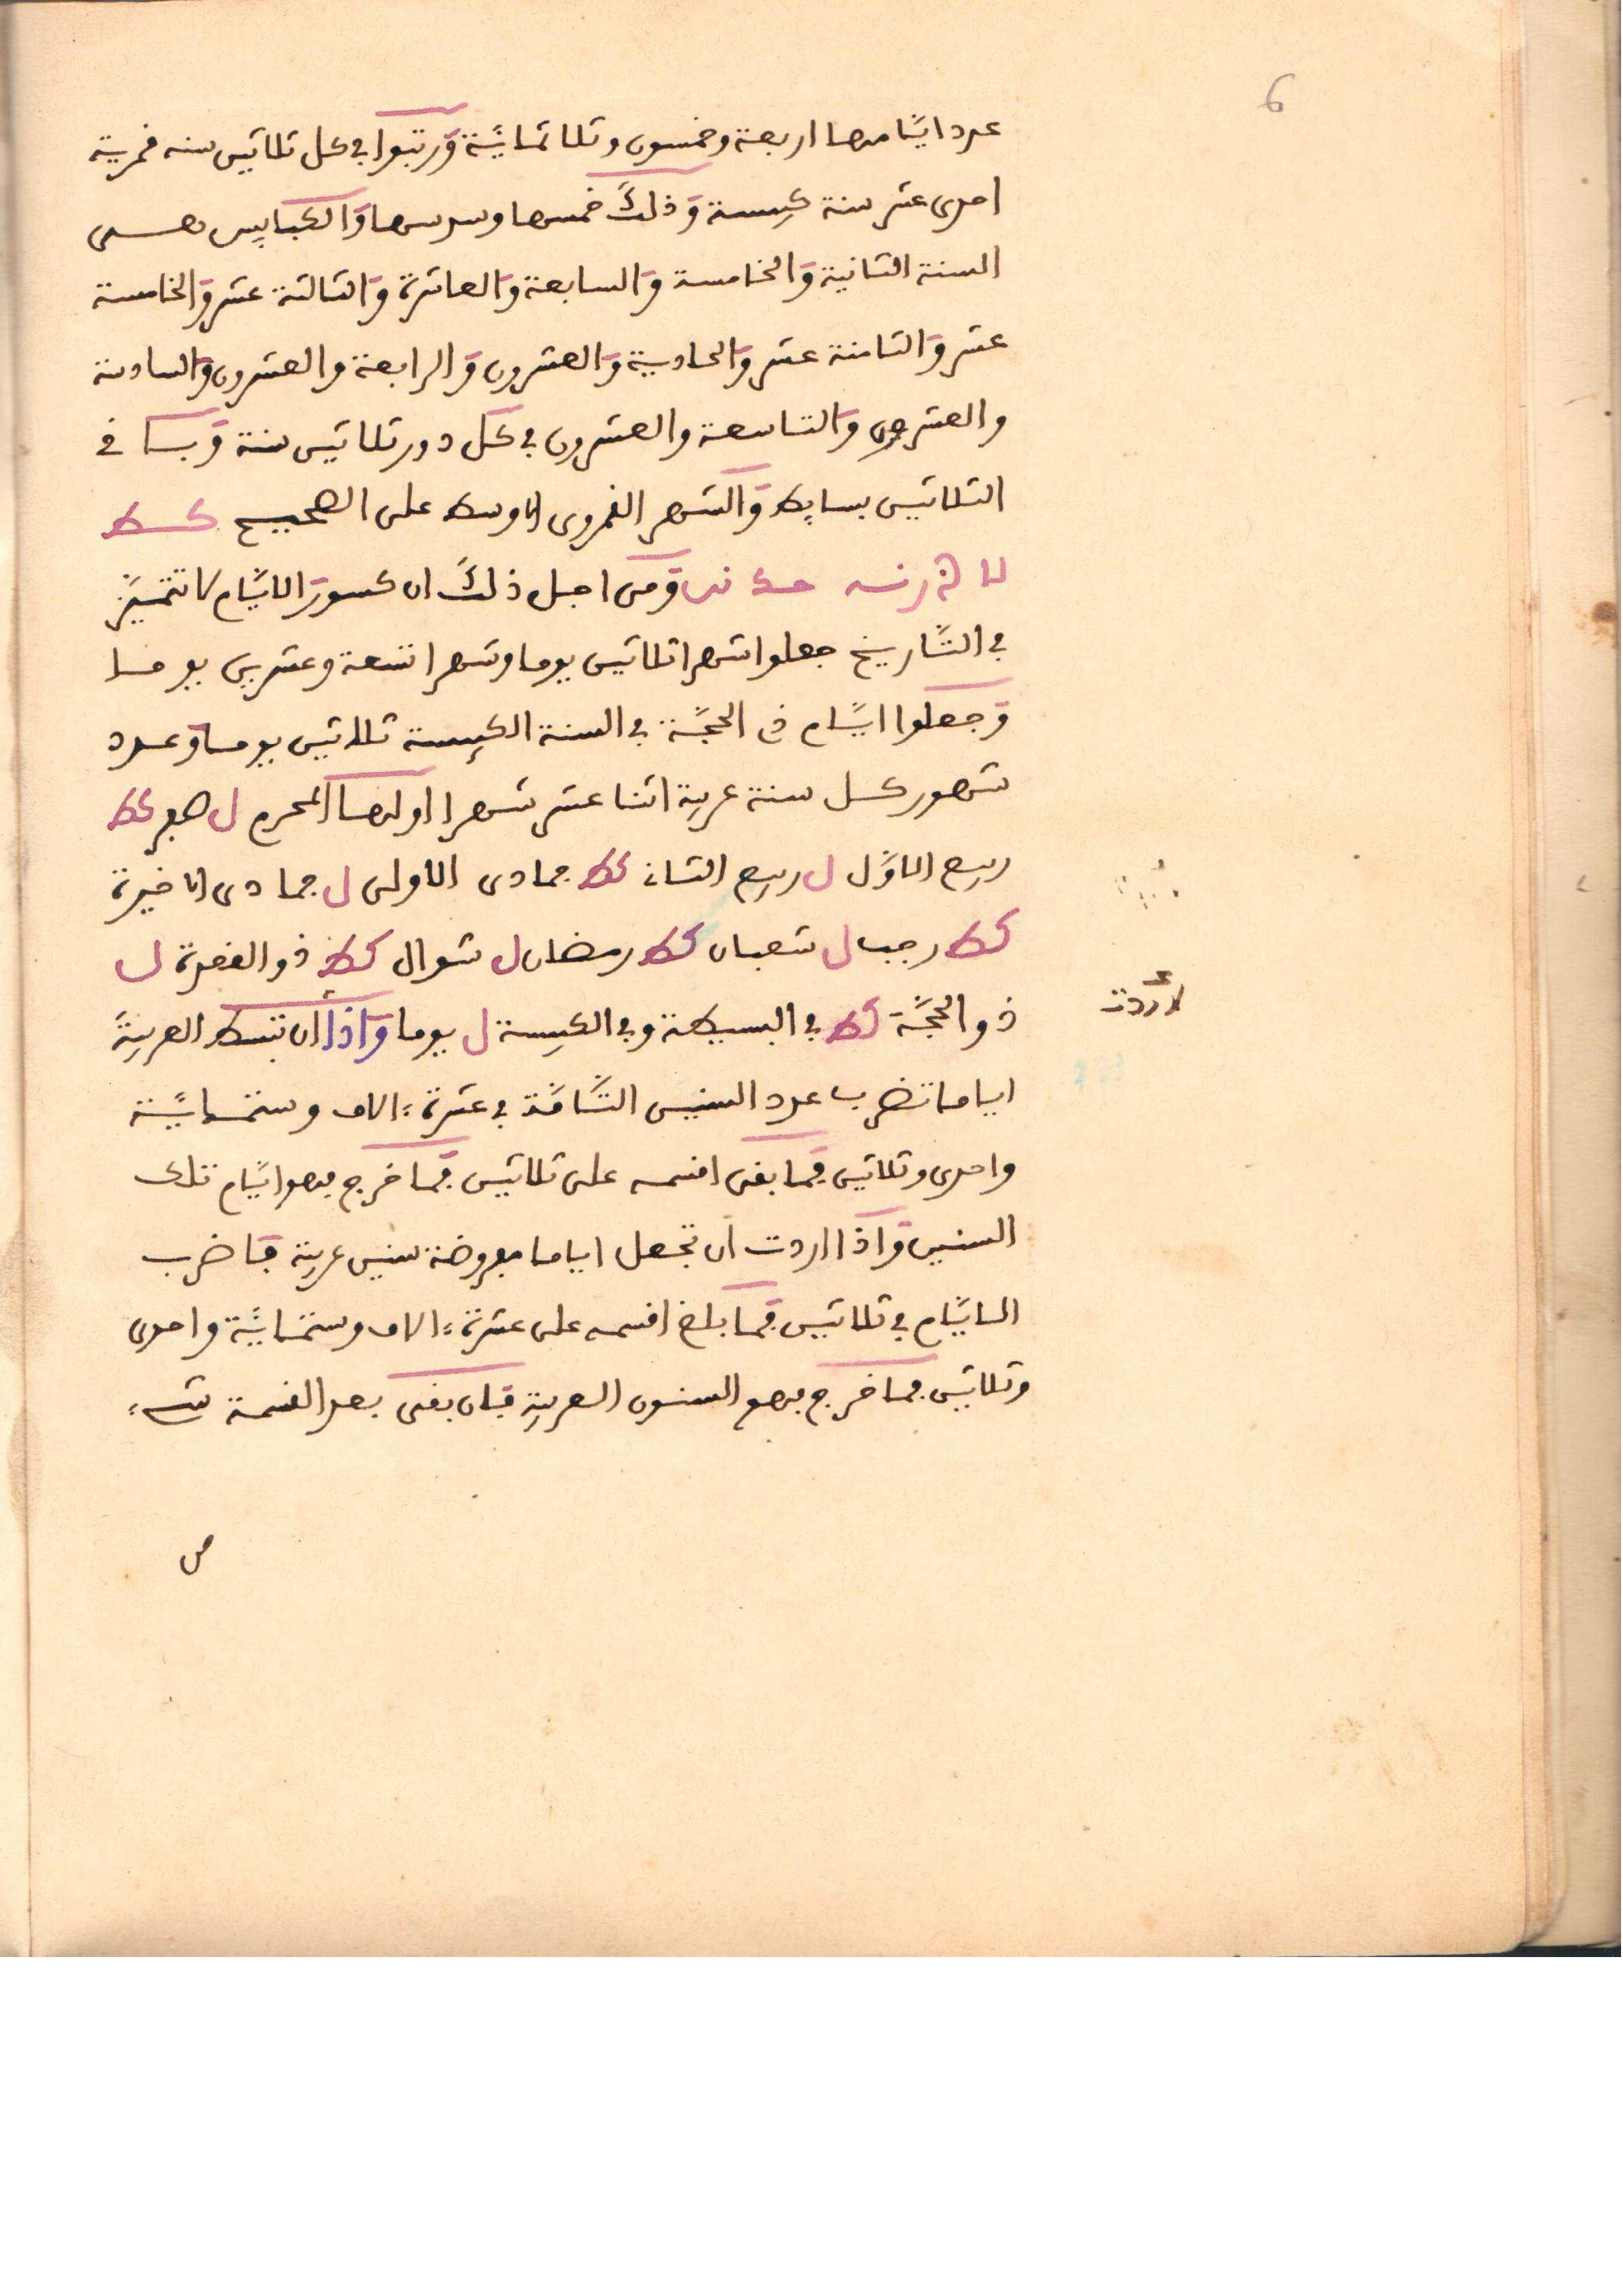 6
عدد ايامها اربعة وخمسون وثلاثماية ورتبوا في كل ثلاثين سنه قمرية
احدى عشر سنة كبيسة وذلك خمسها وسدسها والكبايس هي
السنة الثانية والخامسة والسابعة والعاشرة والثالثة عشر والخامسة
عشر والثامنة عشر والحادية والعشرون والرابعة والعشرون والسادسة
والعشرون والتاسعة والعشرون في كل دور ثلاثين سنة و في
الثلاثين بسايط والشهر القمرى الاوسط على الصحيح كط
ومن اجل ذلك ان كسور الايام لا تتميز
في التاريخ جعلوا شهرا ثلاثين يوما وشهرا تسعة وعشرين يوما
وجعلوا ايام ذي الحجة في السنة الكبيسة ثلاثين يوما وعدد
شهور كل سنة عربية اثنا عشر شهرا اولها المحرم ل صفر كط
ربيع الاول ل ربيع الثان كط جمادى الاولى ل جمادى الاخيرة
كط رجب ل شعبان كط رمضان ل شوال كط ذو القعدة ل
ذو الحجة كط في البسيطة وفي الكبيسة ل يوما واذا ان تبسط العربية
اردت
اياما تضرب عدد السنين التامة في عشرة ءالاف وستماية
واحدى وثلاثين فما بقى اقسمه على ثلاثين فما خرج فهو ايام تلك
السنين واذا اردت ان تجعل اياما مفروضة سنين عربية فاضرب
الايام في ثلاثين فما بلغ اقسمه على عشرة ءالاف وستماية واحدى
وثلاثين فما خرج فهو السنون العربية فان بقى بعد القسمة شيء